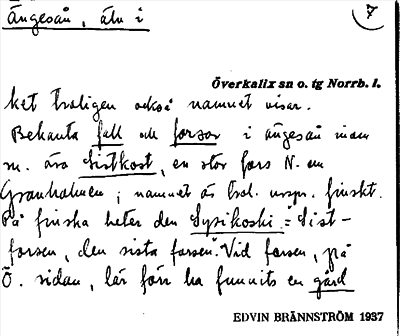 Ängesån, älv i
7
Överkalix sn o. tg Norrb. l.
ket troligen också namnet visar.
Bekanta fall och forsar i ängesån inom
sn. äro Sistkost, en stor fors N. om
Granholmen; namnet är trol. urspr. finskt.
På finska heter den Sysikoski = "Sist-
forsen, den sista forsen". Vid forsen, på
Ö. sidan, lär förr ha funnits en gård
EDVIN BRÄNNSTRÖM 1937